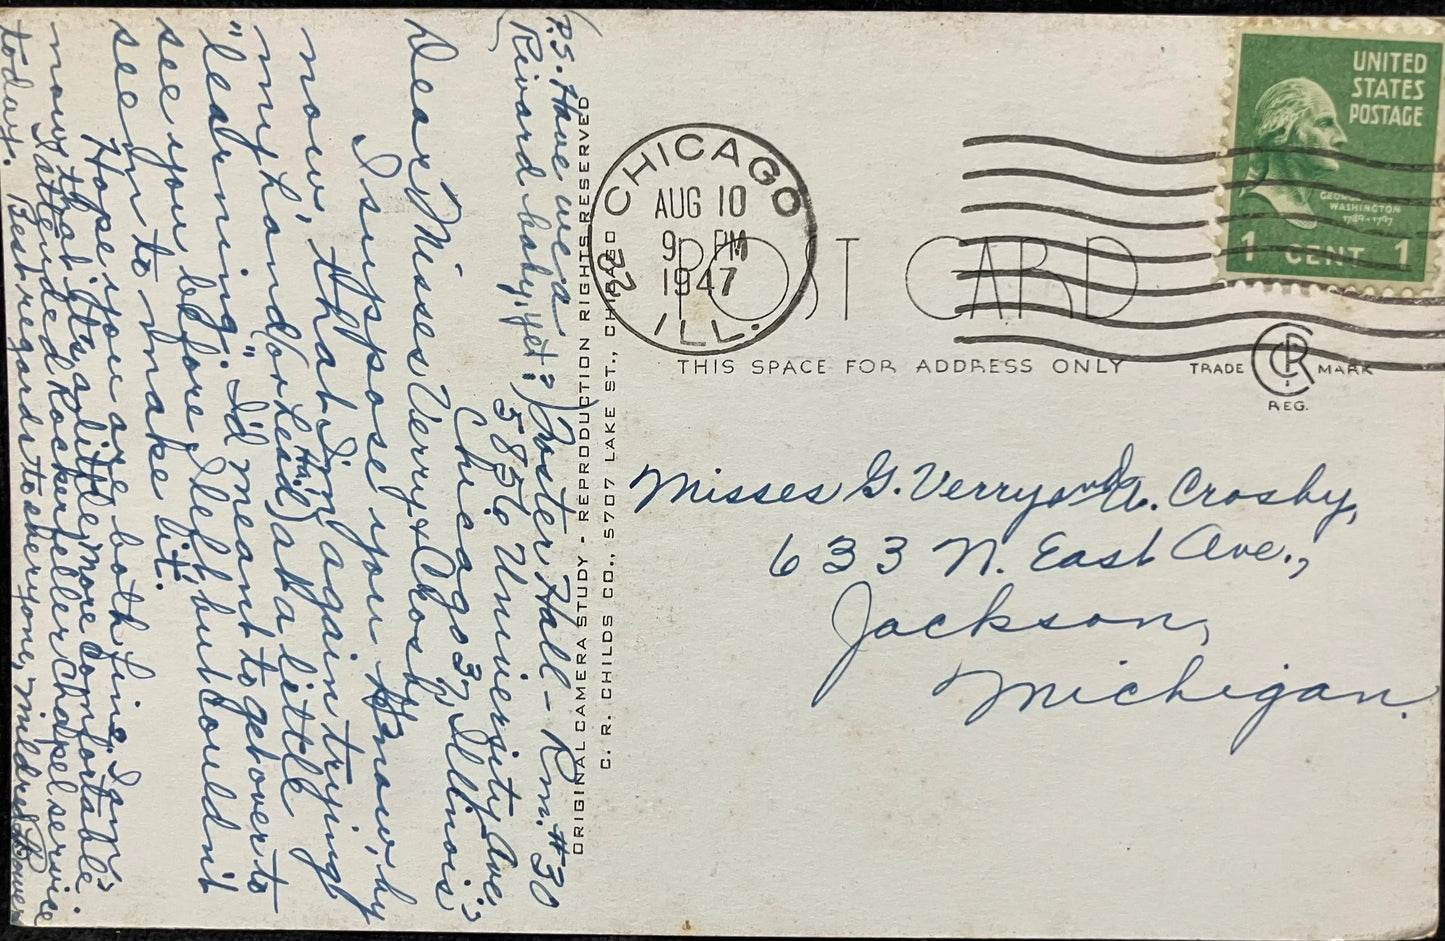 (P.S. Have we a
Rivard baby, yet?)
Foster Hall - Rm. #30
5856 University Ave.,
Chicago 37, Illinois
Dear Misses Verry & Crosby,
I suppose you know, by
now, that I'm again trying
my hand (or head, Ha!) at a little
"learning." I'd meant to get over to
see you before I left but couldn't
seem to make it.
Hope you are both fine. I am,
now that it's a little more comfortable.
I attended Rockefeller Chapel service
today. Best regards to everyone, Mildred Bower
ORIGINAL CAMERA STUDY - REPRODUCTION RIGHTS RESERVED
C. R. CHILDS CO., 5707 LAKE ST., CHICAGO
CHICAGO 22
AUG 10
9 PM
1947
ILL.
UNITED
STATES
POSTAGE
GEORGE
WASHINGTON
1789-1797
1 CENT 1
POST CARD
THIS SPACE FOR ADDRESS ONLY
TRADE CRC MARK
REG.
Misses G. Verry and A. Crosby,
633 N. East Ave.,
Jackson,
Michigan.